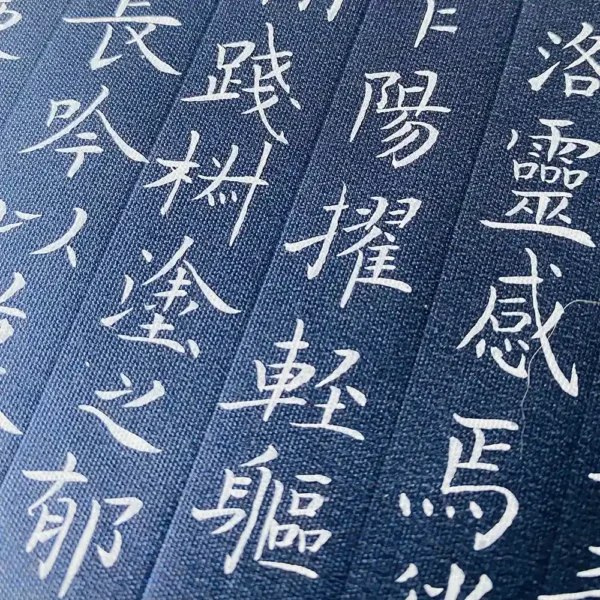 洛靈感焉
陽擢輕軀
踐椒塗之郁
長吟以